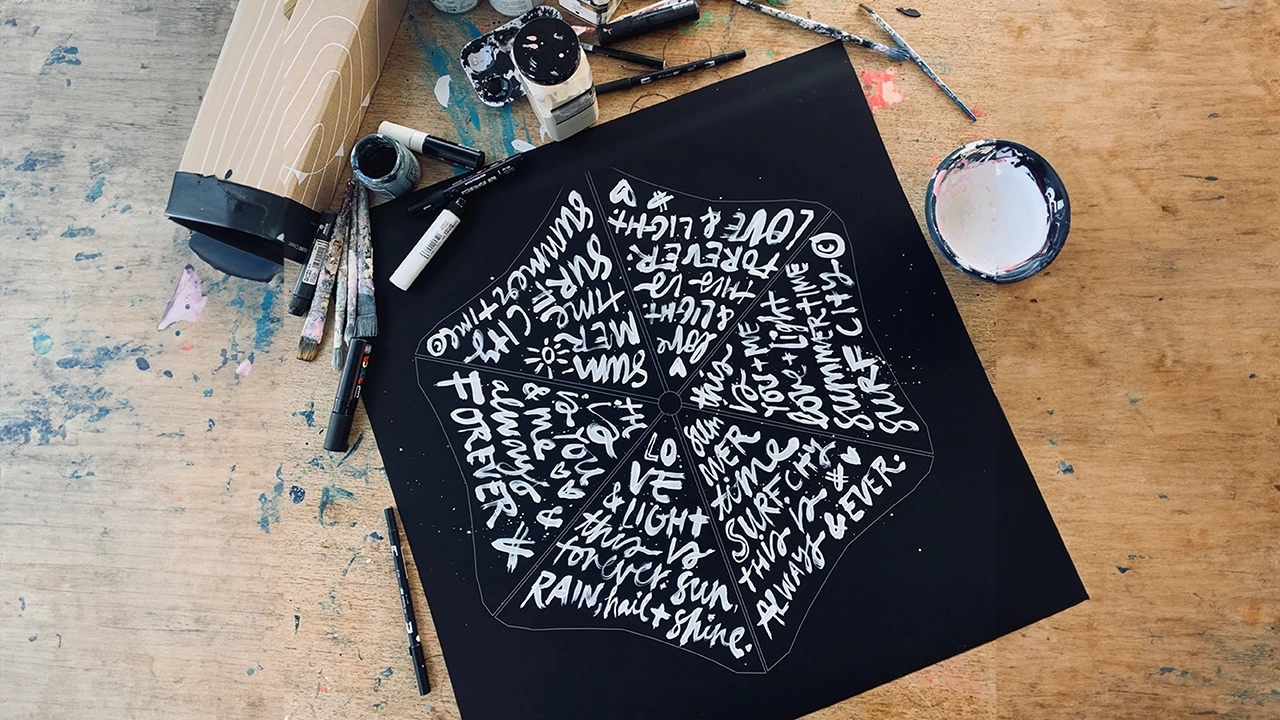 SUM
MER
TIME
SURF CITY
SUMMERTIME ©
love
& LIGHT.
this is
FOREVER
LOVE & LIGHT
this
is
YOU + ME
love + light
SUMMERTIME
SURF CITY ©
sum
MER
time
SURF. CITY
this is #
ALWAYS & EVER.
LO
VE
& LIGHT
this is
forever. sun,
RAIN, hail + shine.
is YOU
& ME
always &
FOREVER #